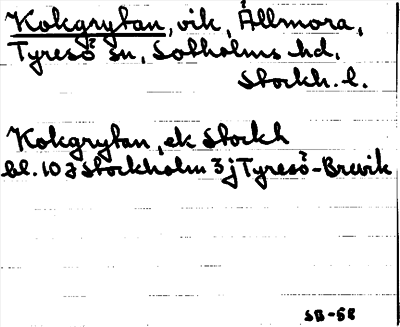 Kokgrytan, vik, Ållmora,
Tyresö sn, Sotholms hd.
Stockh. l.
Kokgrytan, ek Stockh
bl. 10 J Stockholm 3 j Tyresö-Brevik
SB-58